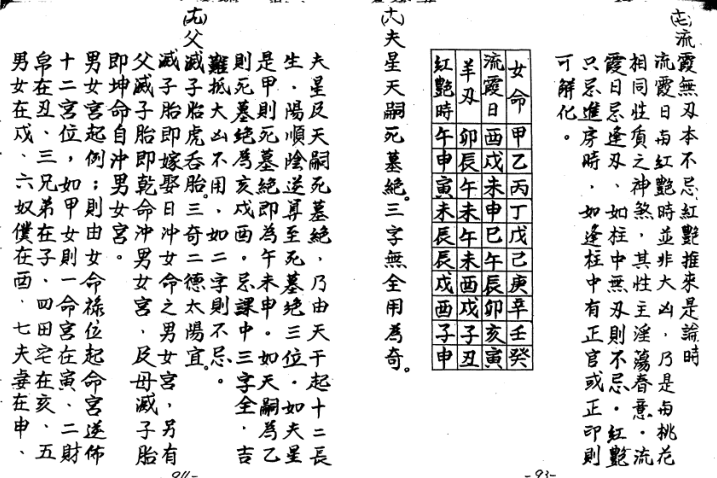 (十七)流霞無刃本不忌紅艷推來是論時
流霞日与紅艷時並非大凶，乃是与桃花
相同性質之神煞，其性主淫蕩春意．流
霞日忌逢刃、如柱中無刃則不忌．紅艷
只忌進房時，如逢柱中有正官或正印則
可解化。
女命 甲 乙 丙 丁 戊 己 庚 辛 壬 癸
流霞日 酉 戌 未 申 巳 午 辰 卯 亥 寅
羊刃 卯 辰 午 未 午 未 酉 戌 子 丑
紅艷時 午 申 寅 未 辰 辰 戌 酉 子 申
(十八)夫星天嗣死墓絕。三字無全用為奇。
-93-
夫星及天嗣死墓絕，乃由天干起十二長
生．陽順陰逆算至死墓絕三位．如夫星
是甲則死墓絕即為午未申．如天嗣為乙
則死墓絕為亥戌酉．忌課中三字全．吉
難抵大凶不用，如二字則不忌。
(十九)父滅子胎虎吞胎。三奇二德太陽宜。
滅子胎即嫁娶日沖女命之男女宮，另有
父滅子胎即乾命沖男女宮，及母滅子胎
即坤命自沖男女宮。
男女宮起例；則由女命祿位起命宮逆佈
十二宮位，如甲女則一命宮在寅、二財
帛在丑、三兄弟在子、四田宅在亥、五
男女在戌、六奴僕在酉、七夫妻在申、
-94-